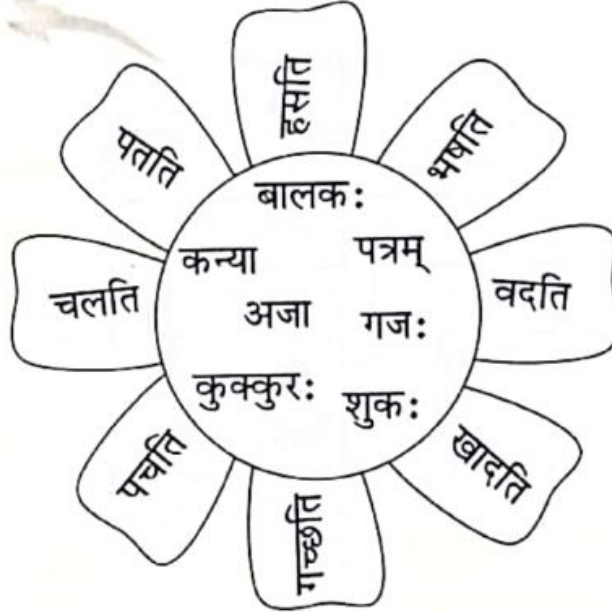 हसति
भषति
वदति
खादति
गच्छति
पचति
चलति
पतति
बालक:
कन्या पत्रम्
अजा गज:
कुक्कुर: शुक: